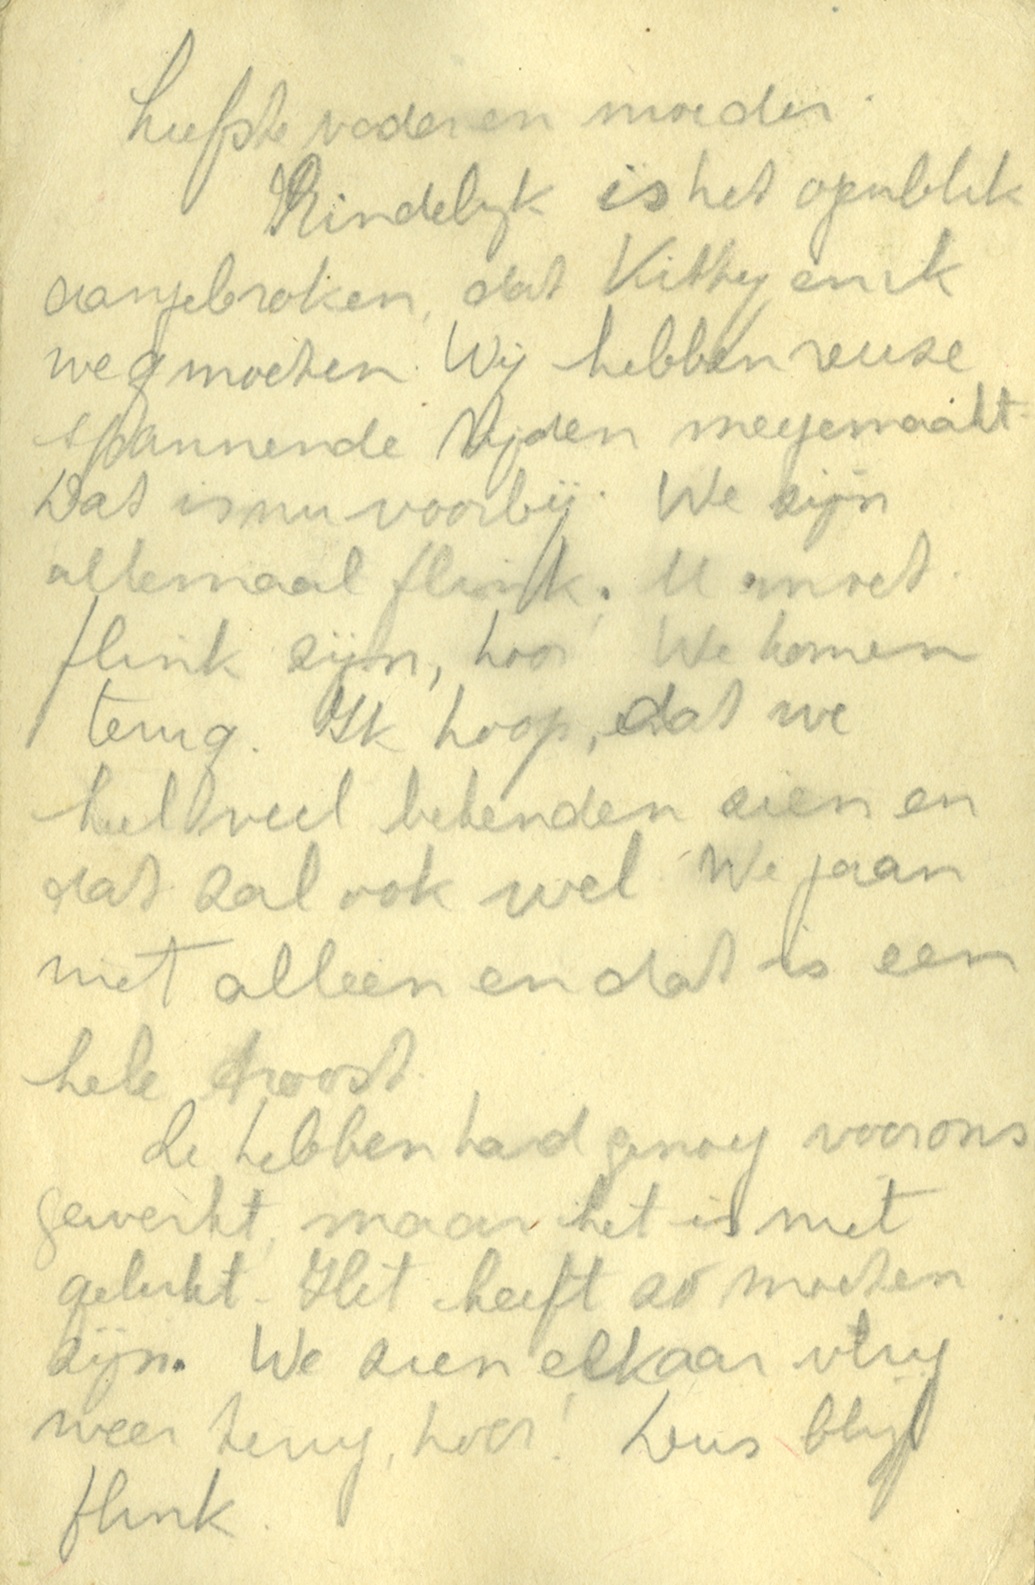 Liefste vader en moeder.
Eindelijk is het ogenblik
aangebroken, dat Kitty en ik
weg moeten. Wij hebben reuze
spannende tijden meegemaakt.
Dat is nu voorbij. We zijn
allemaal flink. U moet
flink zijn, hoor! We komen
terug. Ik hoop, dat we
heel veel bekenden zien en
dat zal ook wel. We gaan
niet alleen en dat is een
hele troost.
Ze hebben hard genoeg voor ons
gewerkt, maar het is niet
gelukt. Het heeft zo moeten
zijn. We zien elkaar vlug
weer terug, hoor! Dus blijf
flink.